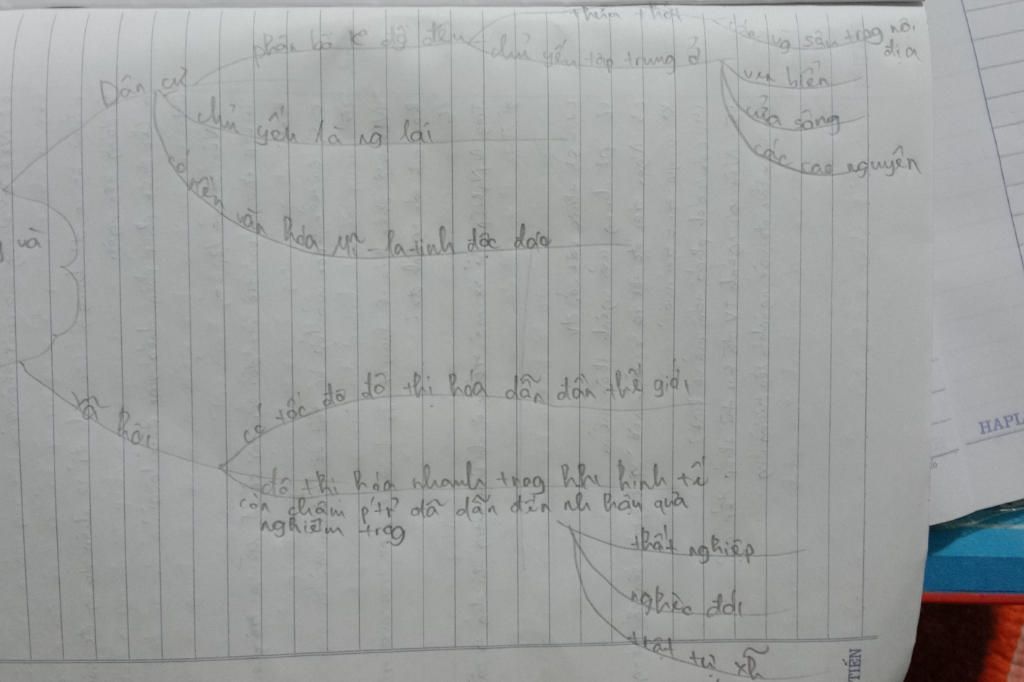 thưa thớt
các vg sâu trog nội địa
phân bố k đồg đều
chủ yếu tập trung ở
ven biển
cửa sông
các cao nguyên
Dân cư
chủ yếu là ng lai
có nền văn hóa Mĩ-la-tinh độc đáo
và
Xã hội
có tốc độ đô thị hóa dẫn đần thế giới
đô thị hóa nhanh trog khi kinh tế
còn chậm p'tr' đã dẫn đến nh hậu quả
nghiêm trog
thất nghiệp
nghèo đói
trật tự xh
HAPL
TIẾN